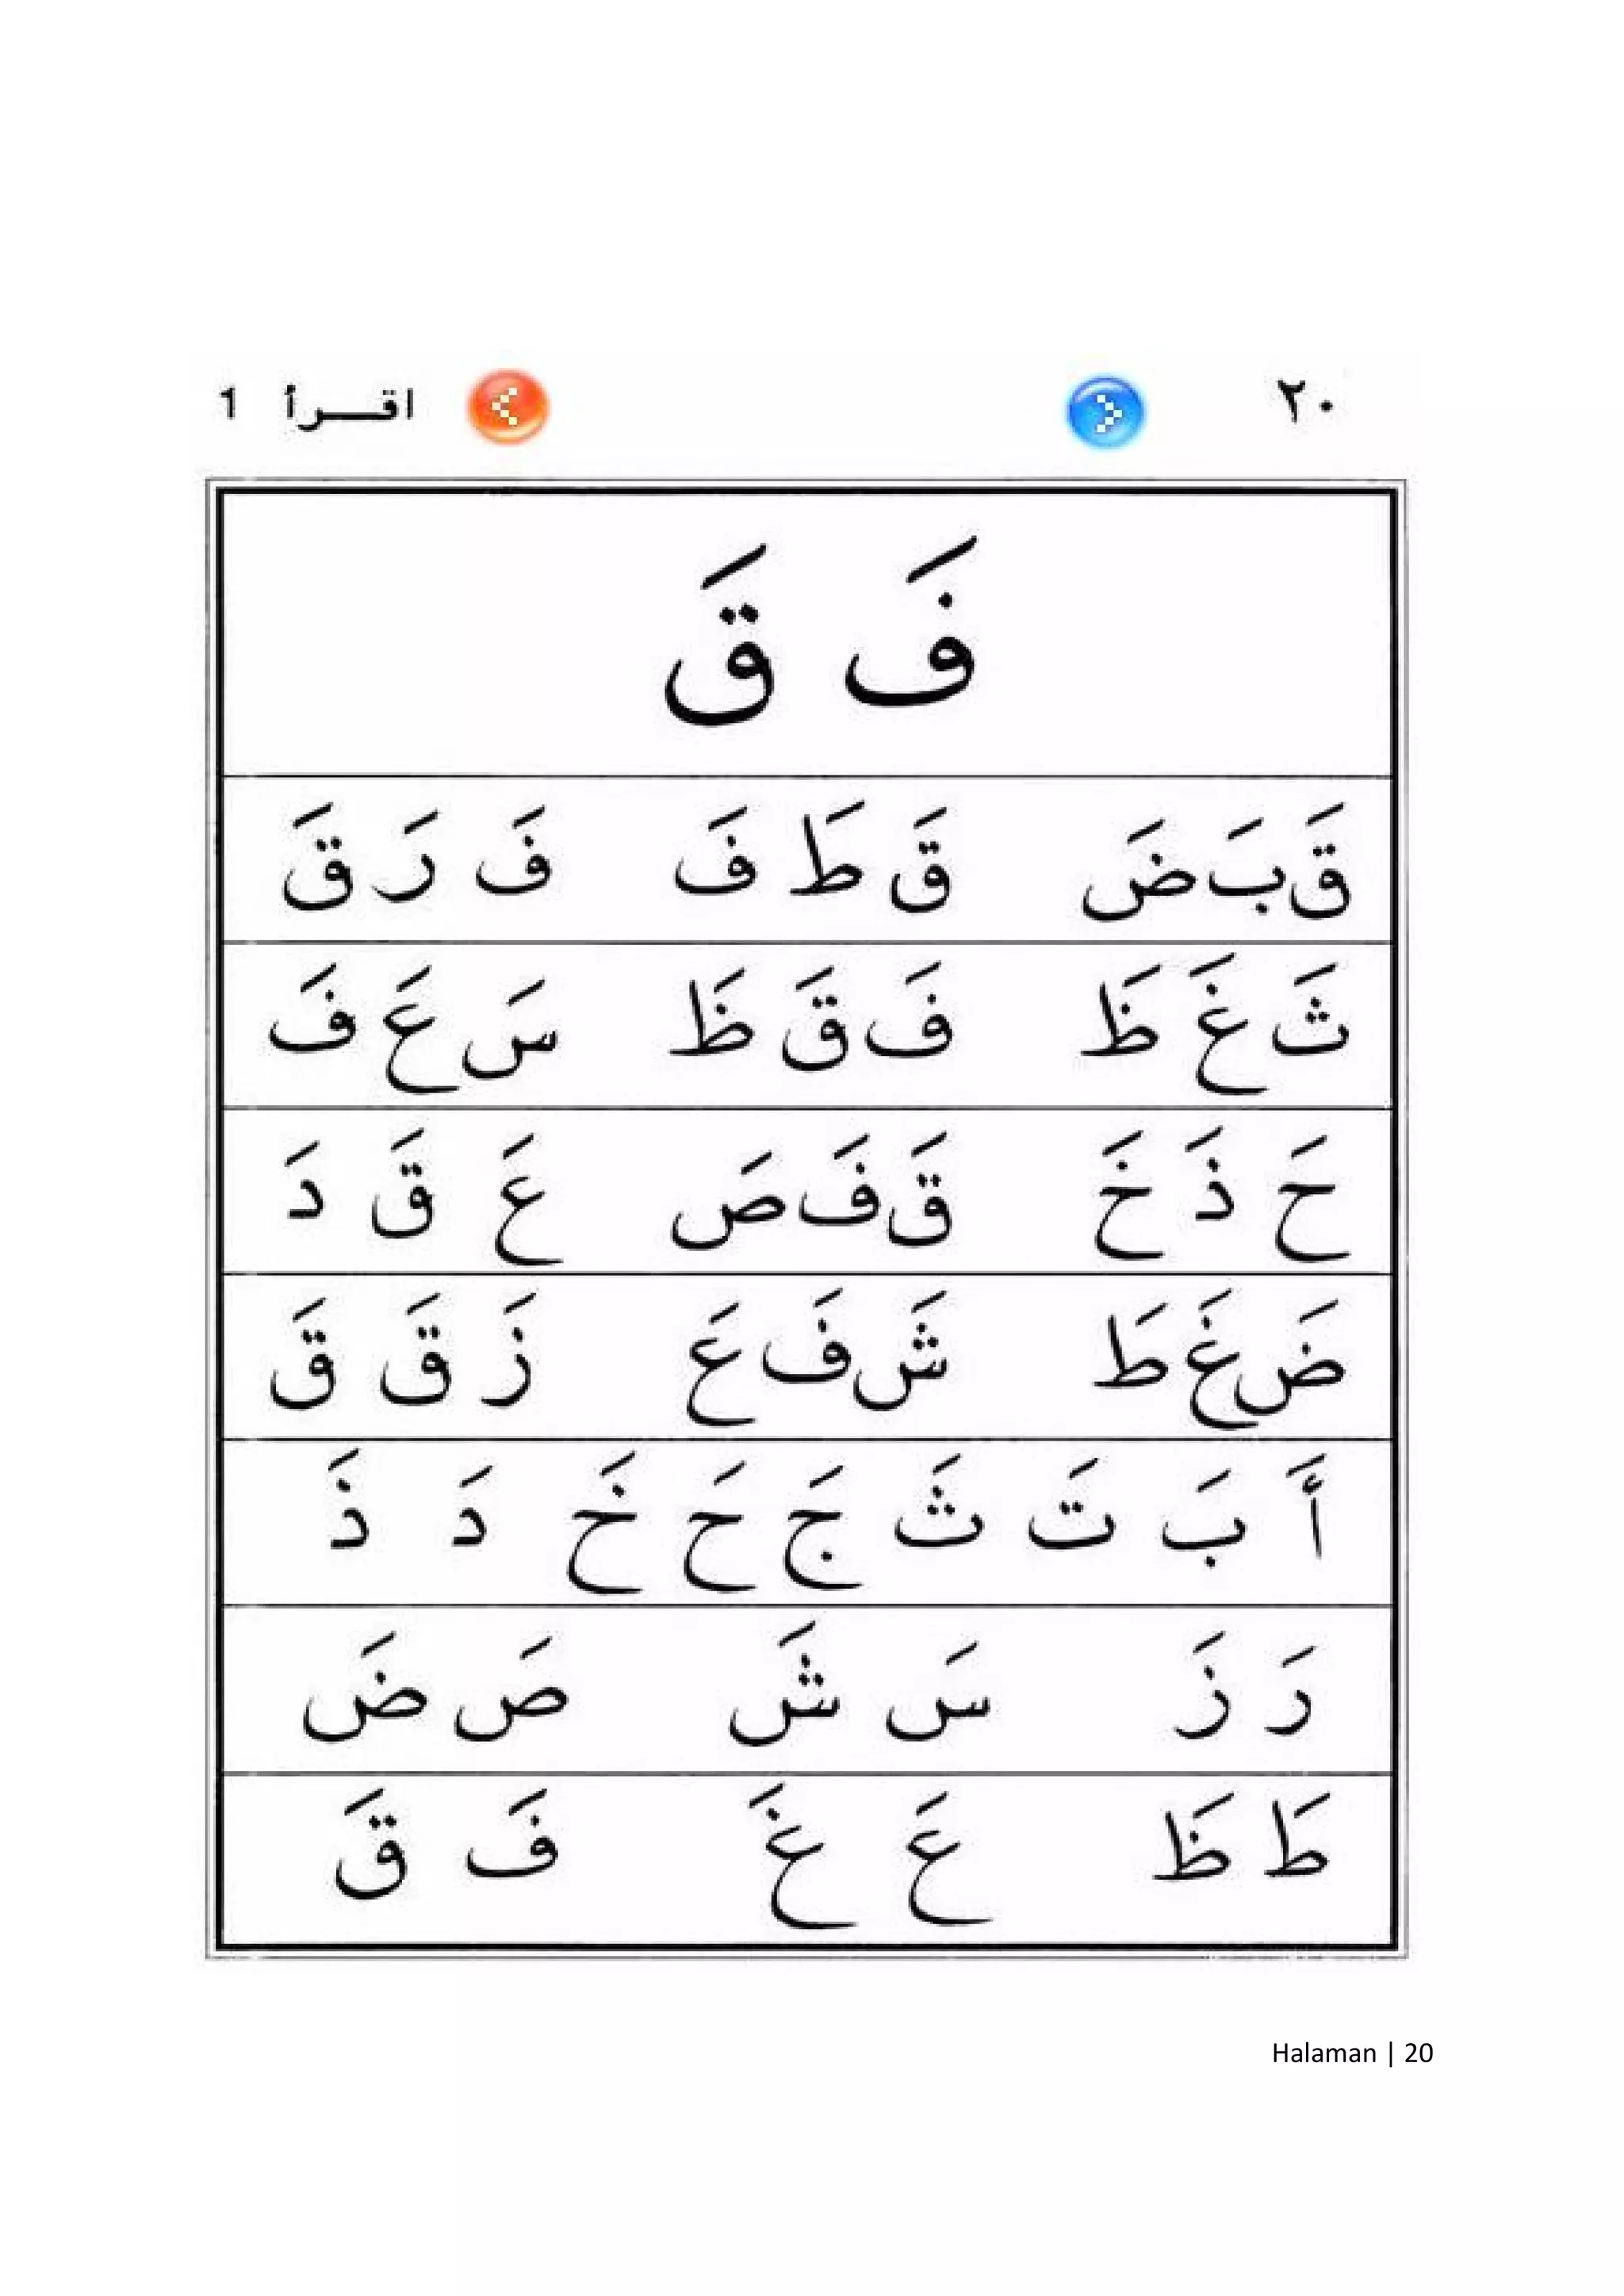 ٢٠ اقـــرأ 1
فَ قَ
قَ بَ ضَ قَ طَ فَ فَ رَ قَ
ثَ غَ ظَ فَ قَ ظَ سَ عَ فَ
حَ ذَ خَ قَ فَ صَ عَ قَ دَ
ضَ غَ طَ شَ فَ عَ زَ قَ قَ
أَ بَ تَ ثَ جَ حَ خَ دَ ذَ
رَ زَ سَ شَ صَ ضَ
طَ ظَ عَ غَ فَ قَ
Halaman | 20